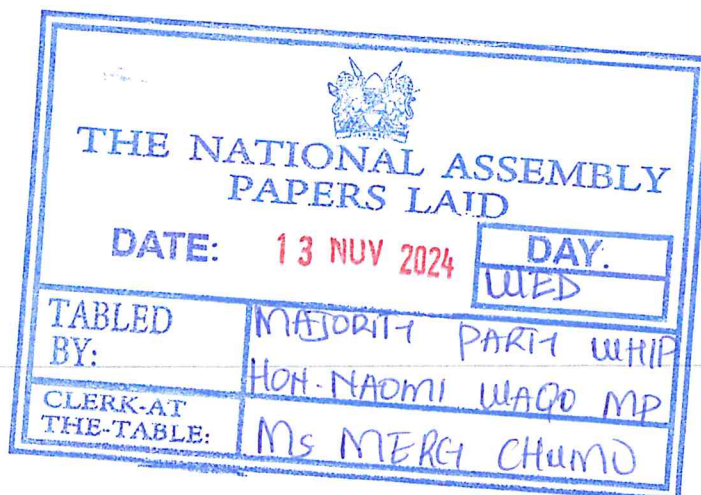 THE NATIONAL ASSEMBLY
PAPERS LAID
DATE: 13 NOV 2024 DAY:
WED
TABLED BY: MAJORITY PARTY WHIP
HON. NAOMI WAQO MP
CLERK-AT THE-TABLE: Ms MERCY CHUMO